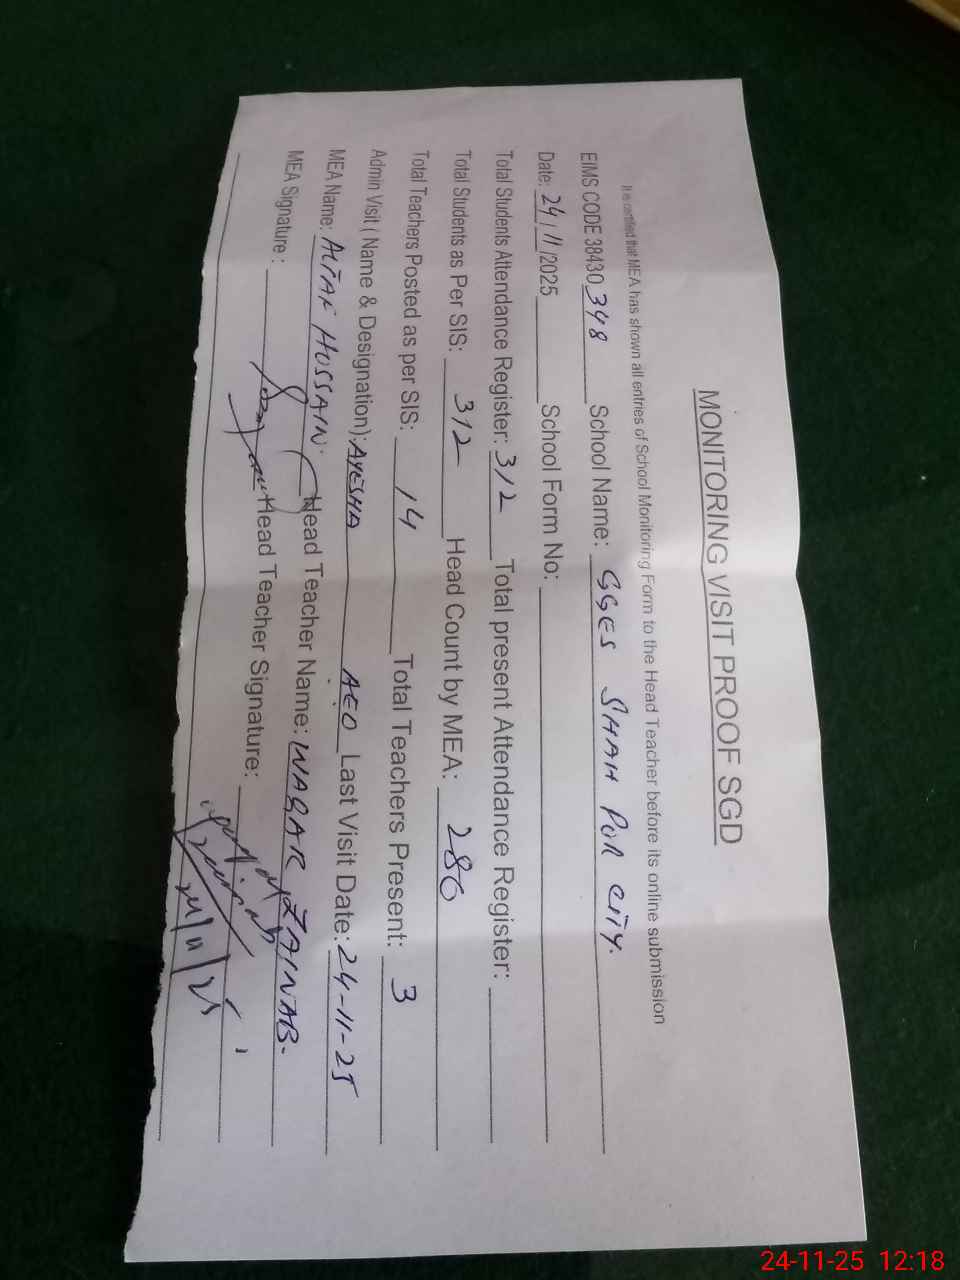 MONITORING VISIT PROOF SGD
It is certified that MEA has shown all entries of School Monitoring Form to the Head Teacher before its online submission
EIMS CODE 38430 348 School Name: GGES SHAH PUR CITY.
Date: 24/11/2025 School Form No:
Total Students Attendance Register: 312 Total present Attendance Register:
Total Students as Per SIS: 312 Head Count by MEA: 280
Total Teachers Posted as per SIS: 14 Total Teachers Present: 3
Admin Visit ( Name & Designation): AYESHA AEO Last Visit Date: 24-11-25
MEA Name: ALTAF HUSSAIN. Head Teacher Name: WAQAR ZAINAB-
MEA Signature : Head Teacher Signature:
24-11-25 12:18